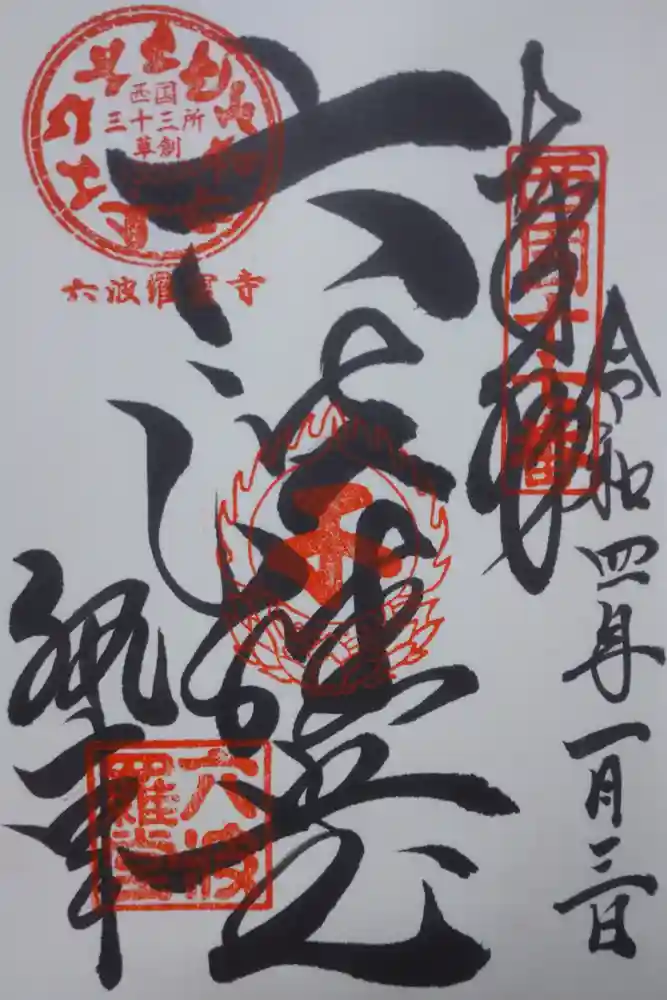 奉拝
西国十七番
令和四年一月三日
六波羅
西国
三十三所
草創
六波羅蜜寺
六波羅